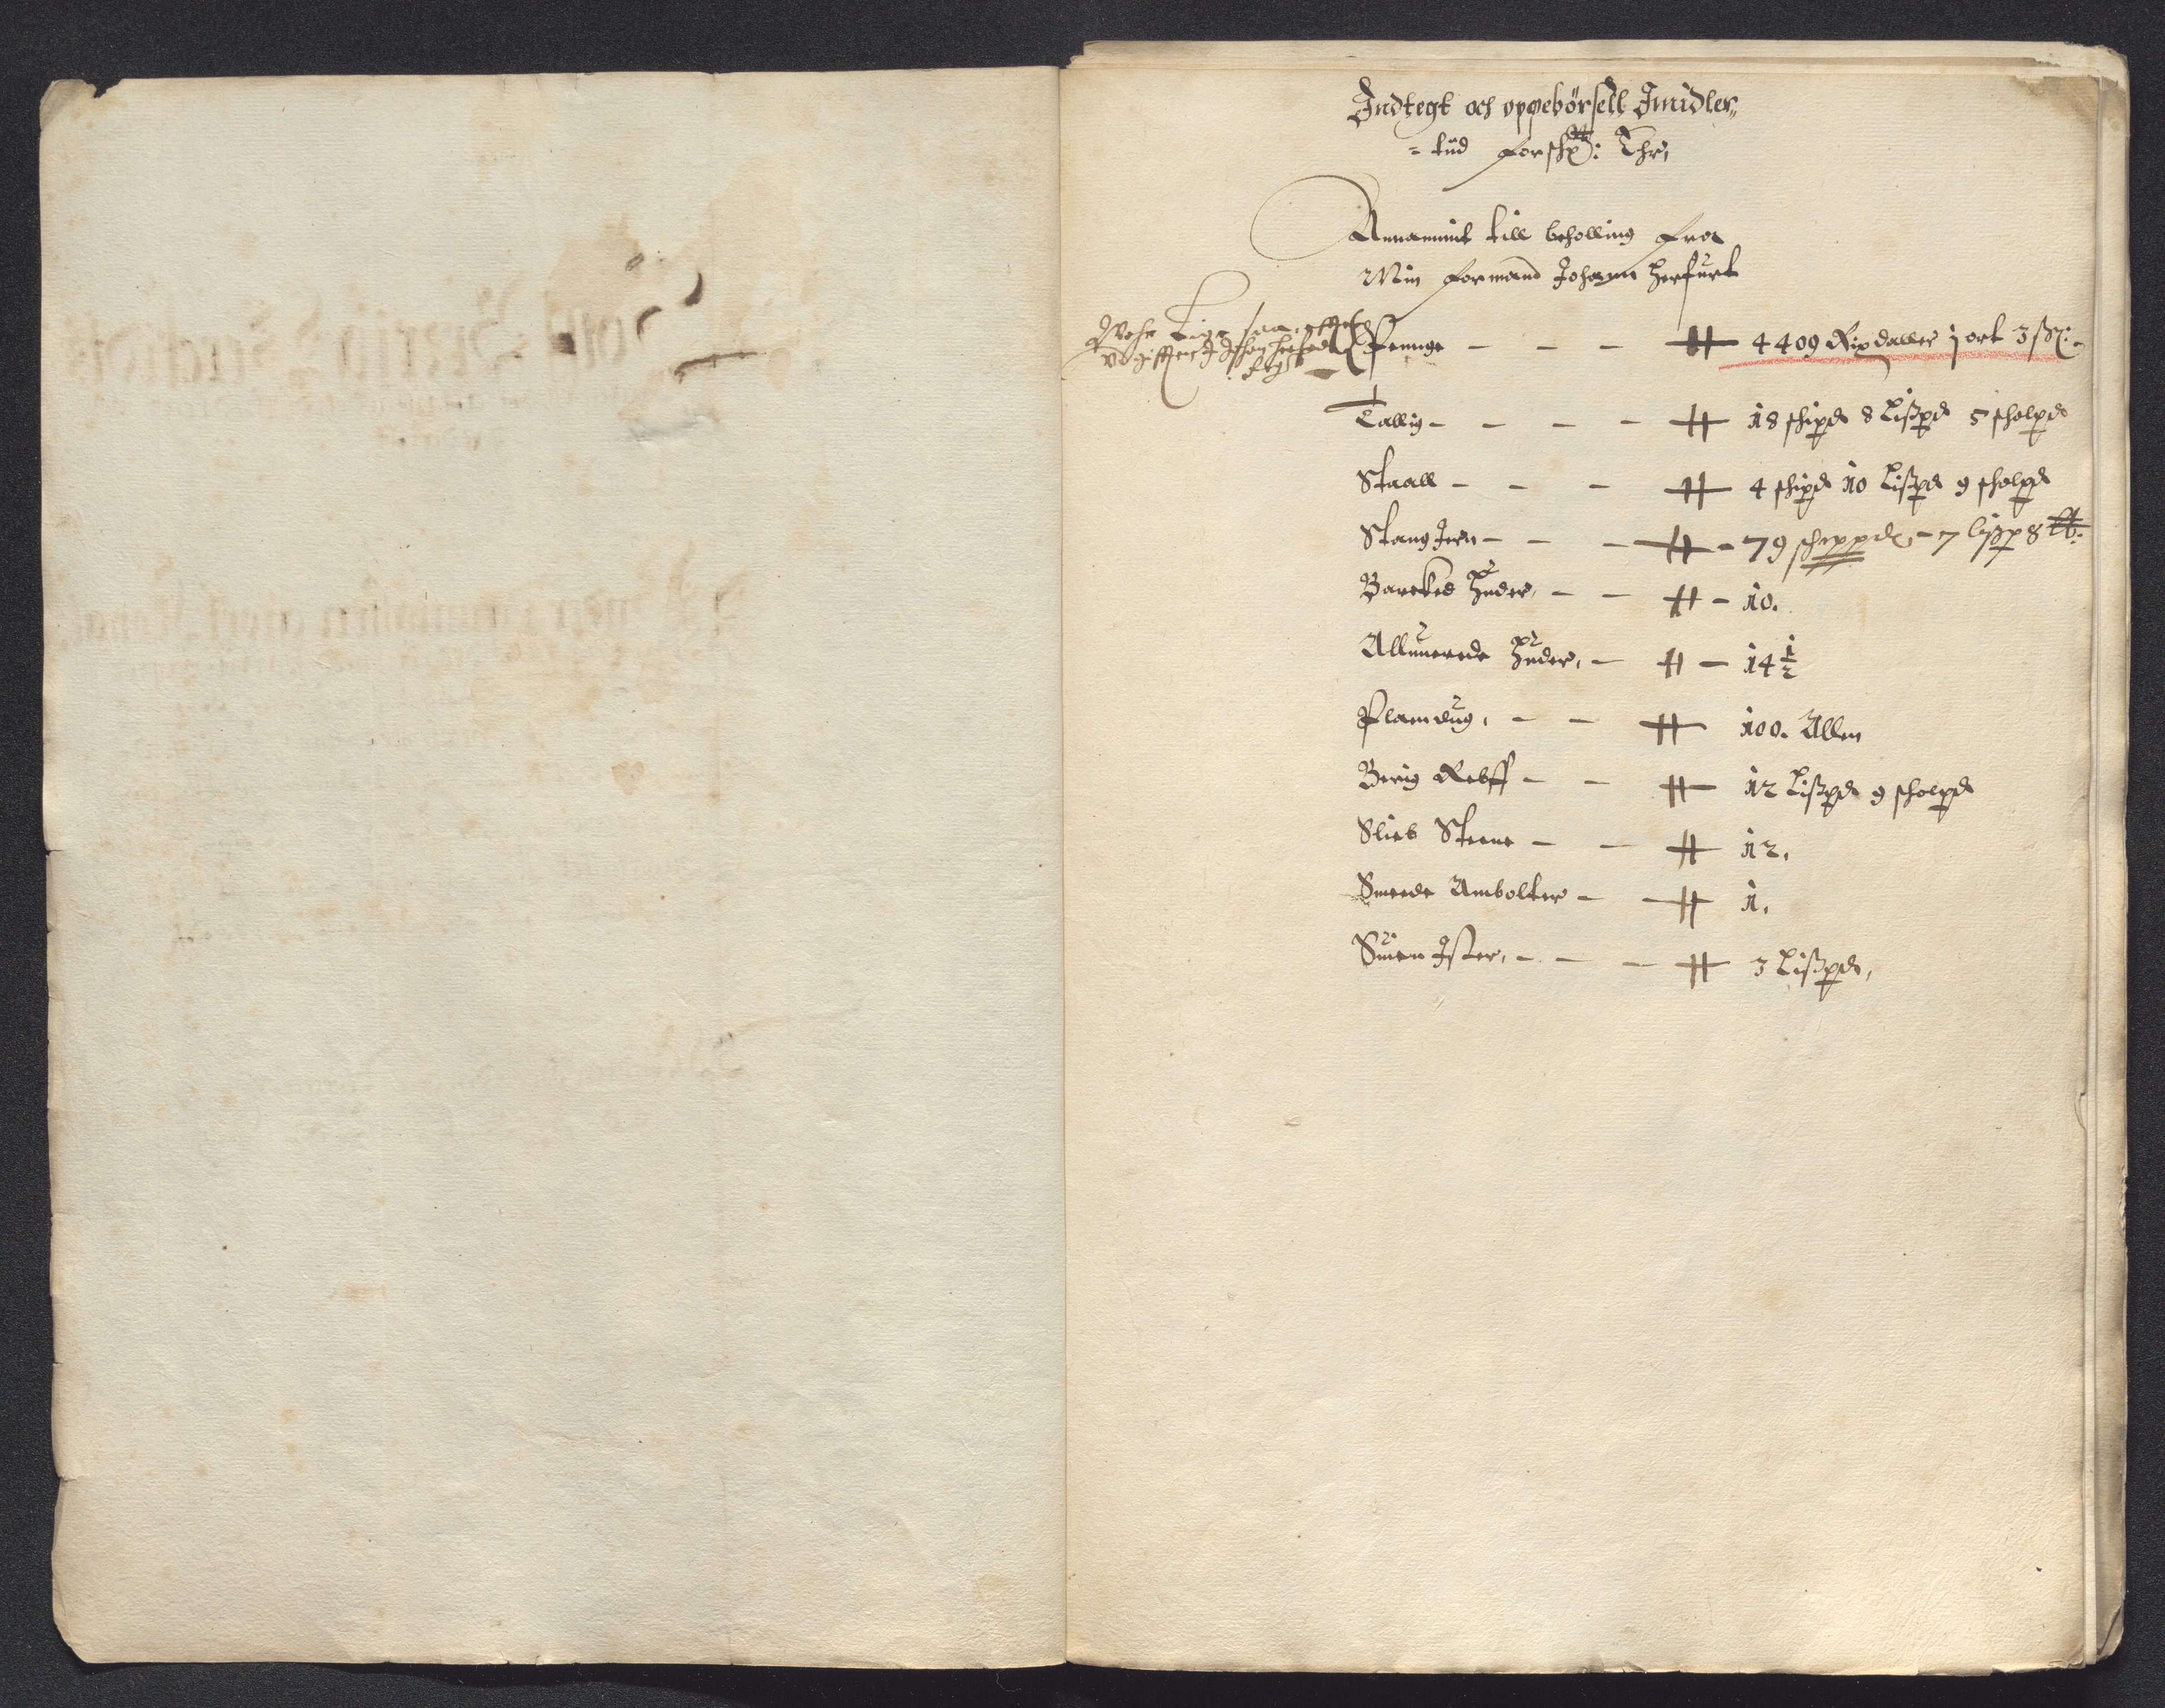 Indtegt och oppebørsell Imidler„
= tüd forschr: Thr,
Annammit till beholling fra
Min formand Johann Herfurt
Pennge - - - 4409 Rixdaller j ort 3 ß:
Tallig - - - - 18 schipd 8 Lißpd 5 scholpd
Staall - - - 4 schipd 10 Lißpd 9 scholpd
Stang Jern - - - 79 schippd - 7 lißp 8 lb.
Barcked Huder, - - - 10.
Allunerede Huder, - - 14 1/2
Plamdug, - - 100. Allen
Berig Rebff - - 12 Lißpd 9 scholpd
Slieb Steene - - 12.
Smede Ambolter - - 1.
Suien Ister, - - - 3 Lißpd,